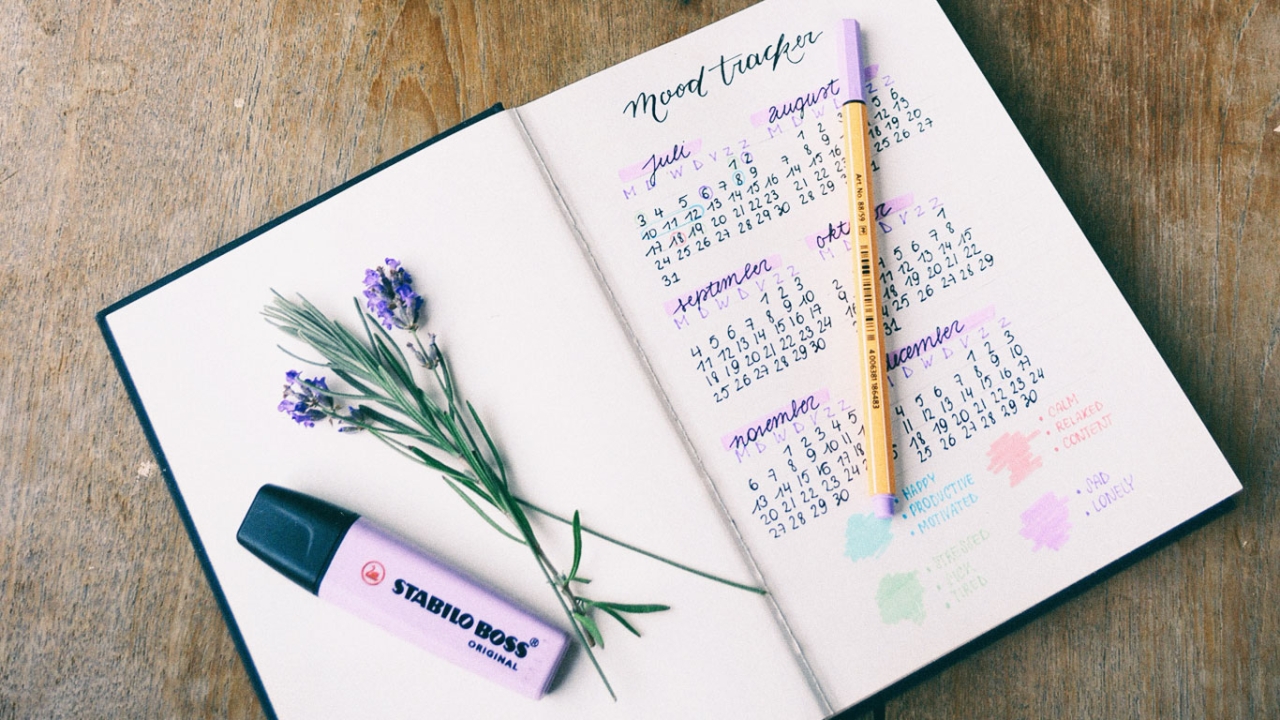 mood tracker
juli
M D W D V Z Z
1 2
3 4 5 6 7 8 9
10 11 12 13 14 15 16
17 18 19 20 21 22 23
24 25 26 27 28 29 30
31
august
M D W Z Z
1 2 3 5 6
7 8 9 12 13
14 15 16 18 19 20
21 22 23 25 26 27
28 29 30
september
M D W D V Z Z
1 2 3
4 5 6 7 8 9 10
11 12 13 14 15 16 17
18 19 20 21 22 23 24
25 26 27 28 29 30
okt
M D V Z Z
1
2 5 6 7 8
11 12 13 14 15
18 19 20 21 22
25 26 27 28 29
31
november
M D W D V Z Z
1 2 3 4 5
6 7 8 9 10 11
13 14 15 16 17 18
20 21 22 23 24
27 28 29 30
december
D W D V Z Z
1 2 3
4 5 6 7 8 9 10
11 12 13 14 15 16 17
18 19 20 21 22 23 24
25 26 27 28 29 30
• CALM
• RELAXED
• CONTENT
• HAPPY
• PRODUCTIVE
• MOTIVATED
• SAD
• LONELY
• SICK
• TIRED
Art. No. 88/59
4 006381 186483
STABILO BOSS®
ORIGINAL